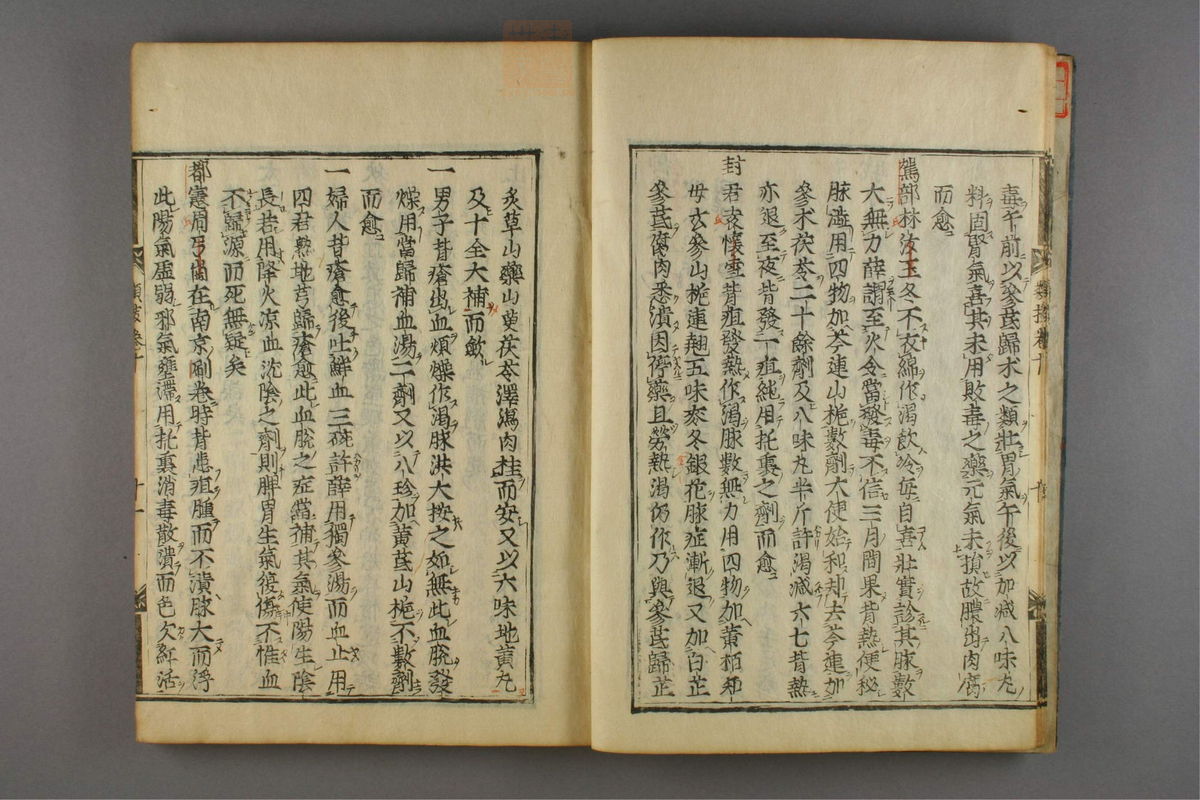 毒午前以參芪歸朮之類壯胃氣午後以加減八味丸
料固腎氣喜其未用敗毒之藥元氣未損故膿出肉腐
而愈
駕部林汝玉冬不衣綿作渴飲冷每自喜壯實診其脉數
大無力薛謂至火令當發毒不信三月間果背熱便秘
脉澁用四物加芩連山梔數劑大便始和却去芩連加
參朮茯苓二十餘劑及八味丸半斤許渴減六七背熱
亦退至夜背發一疽純用托裏之劑而愈
封君袁懷雪背疽發熱作渴脉數無力用四物加黃栢知
母玄參山梔連翹五味麥冬銀花脉症漸退又加白芷
參芪腐肉悉潰因停藥且勞熱渴仍作乃與參芪歸芷
類按卷十
炙草山藥山茱茯苓澤瀉肉桂而安又以六味地黃丸
及十全大補而斂
一男子背瘡出血煩燥作渴脉洪大按之如無此血脫發
燥用當歸補血湯二劑又以八珍加黃芪山梔不數劑
而愈
一婦人背瘡愈後吐鮮血三碗許薛用獨參湯而血止用
四君熟地芎歸瘡愈此血脫之症當補其氣使陽生陰
長若用降火凉血沈陰之劑則脾胃生氣復傷不惟血
不歸源而死無疑矣
都憲周弓岡在南京刷卷時背患疽腫而不潰脉大而浮
此陽氣虛弱邪氣壅滯用托裏消毒散潰而色欠紅活
類按卷十
十一